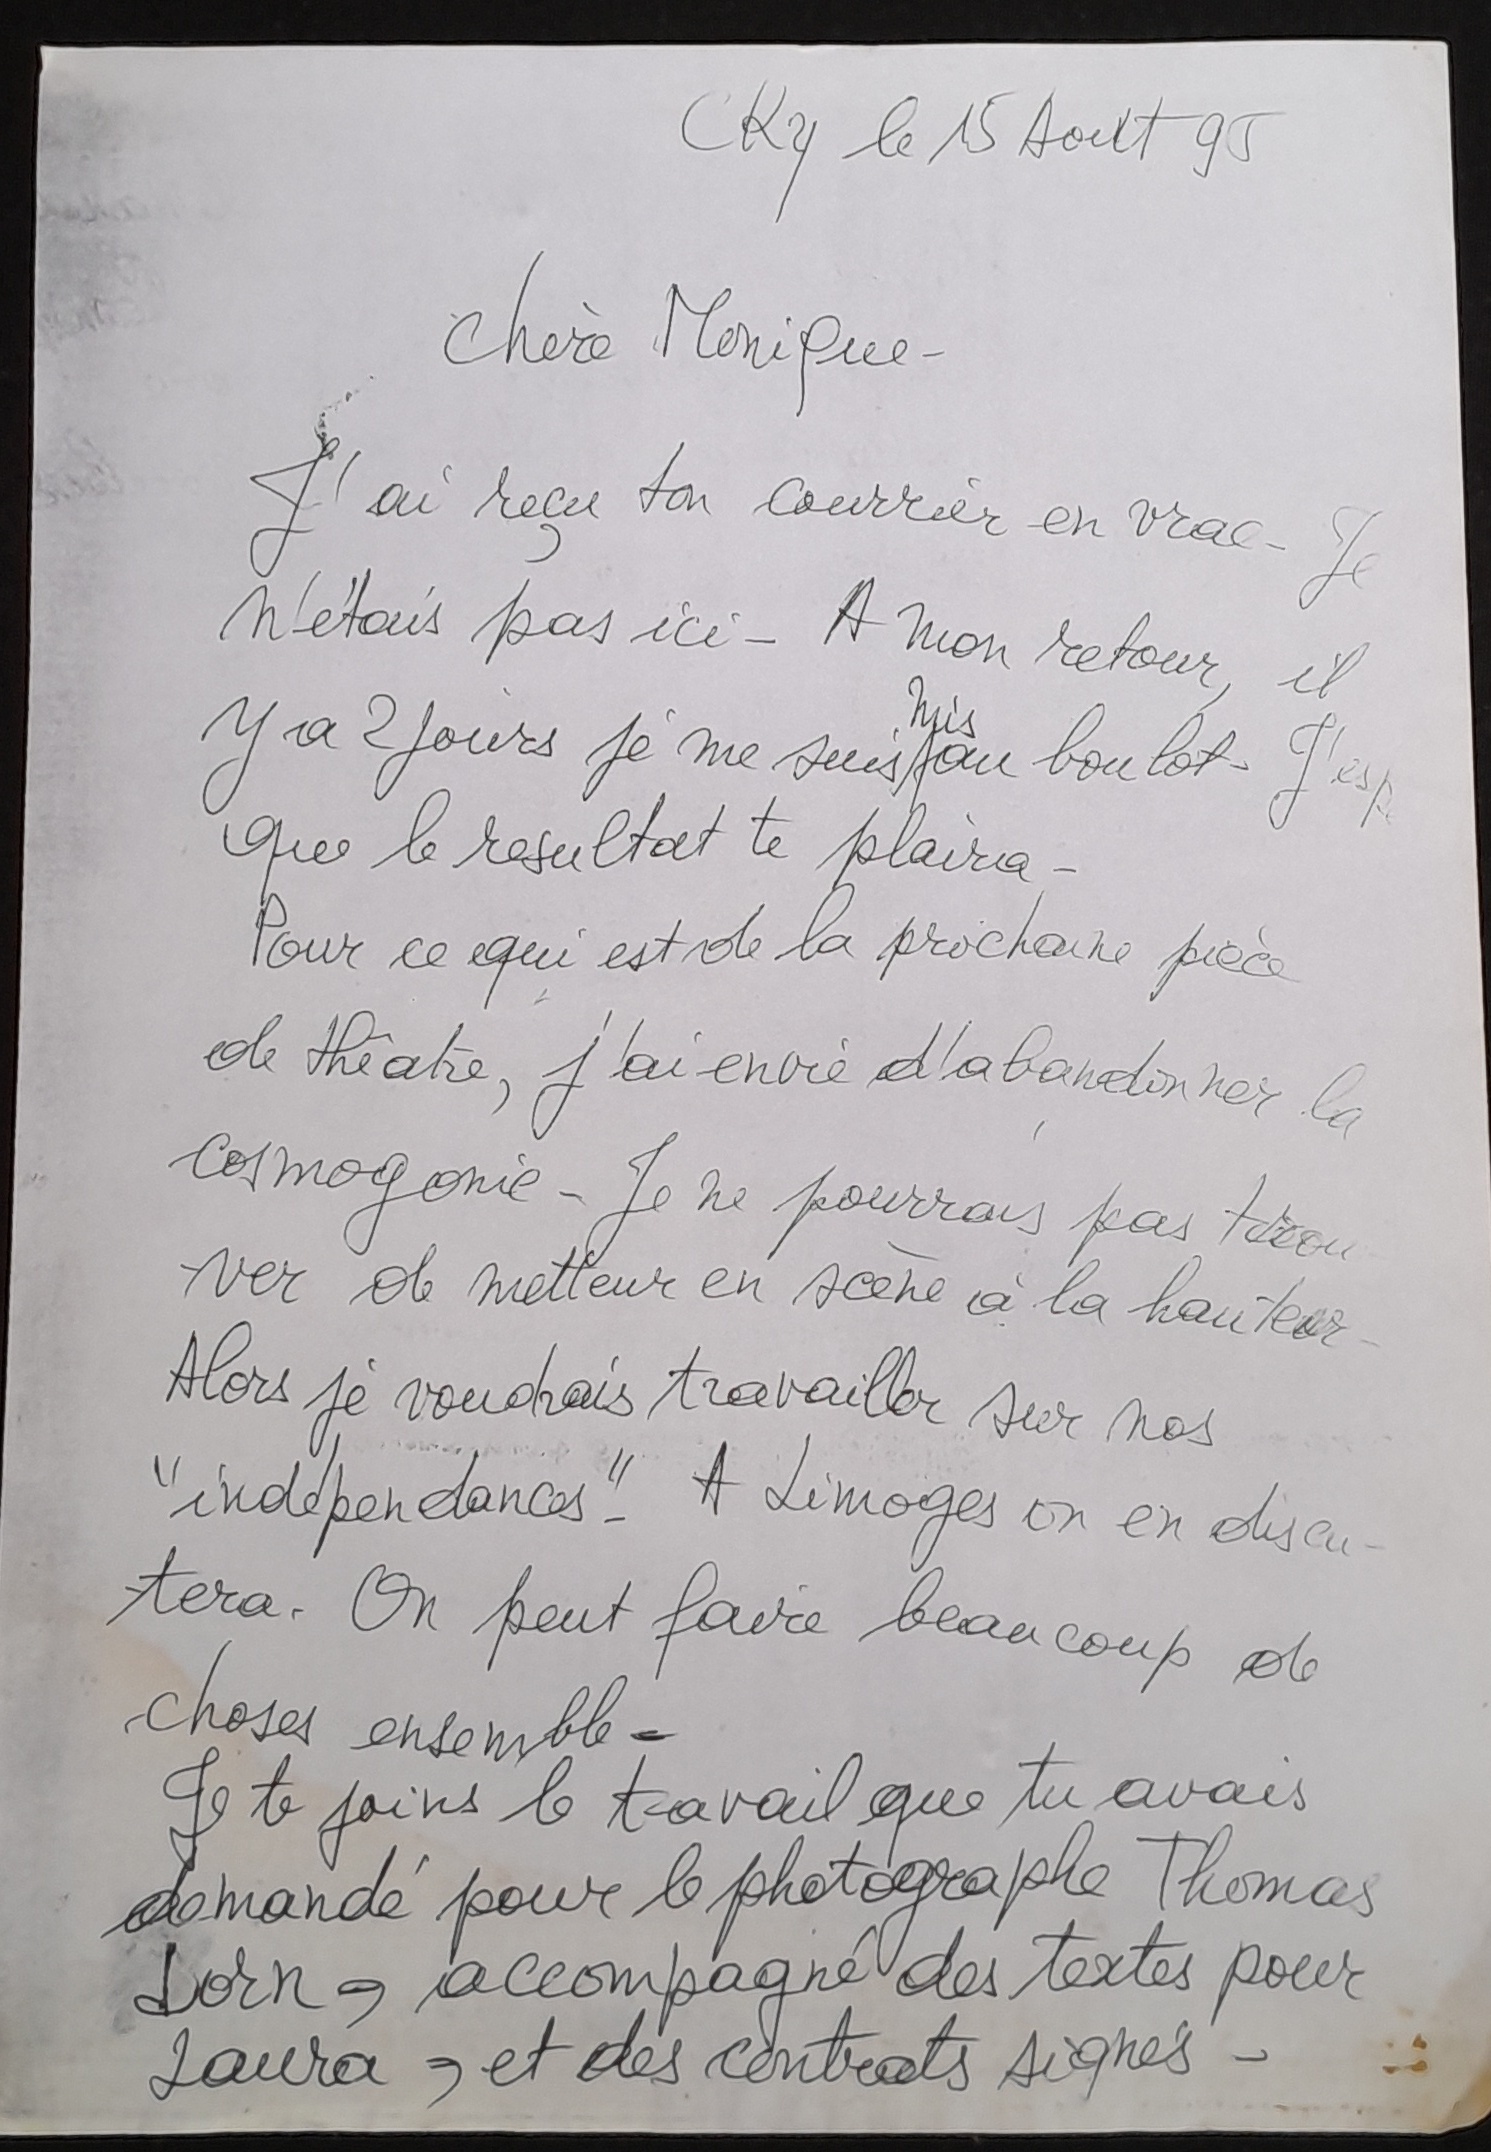 CKy le 15 Août 95
Chère Monique -
J'ai reçu ton courrier en vrac - Je
n'étais pas ici - A mon retour, il
y a 2 jours je me suis mis au boulot - J'esp
que le resultat te plaira -
Pour ce qui est de la prochaine pièce
de théâtre, j'ai envie d'abandonner la
cosmogonie - Je ne pourrais pas trou
-ver de metteur en scène à la hauteur -
Alors je voudrais travailler sur nos
"indépendances" - A Limoges on en discu-
tera. On peut faire beaucoup de
choses ensemble -
Je te joins le travail que tu avais
demandé pour le photographe Thomas
Dorn, accompagné des textes pour
Laura, et des contrats signés -